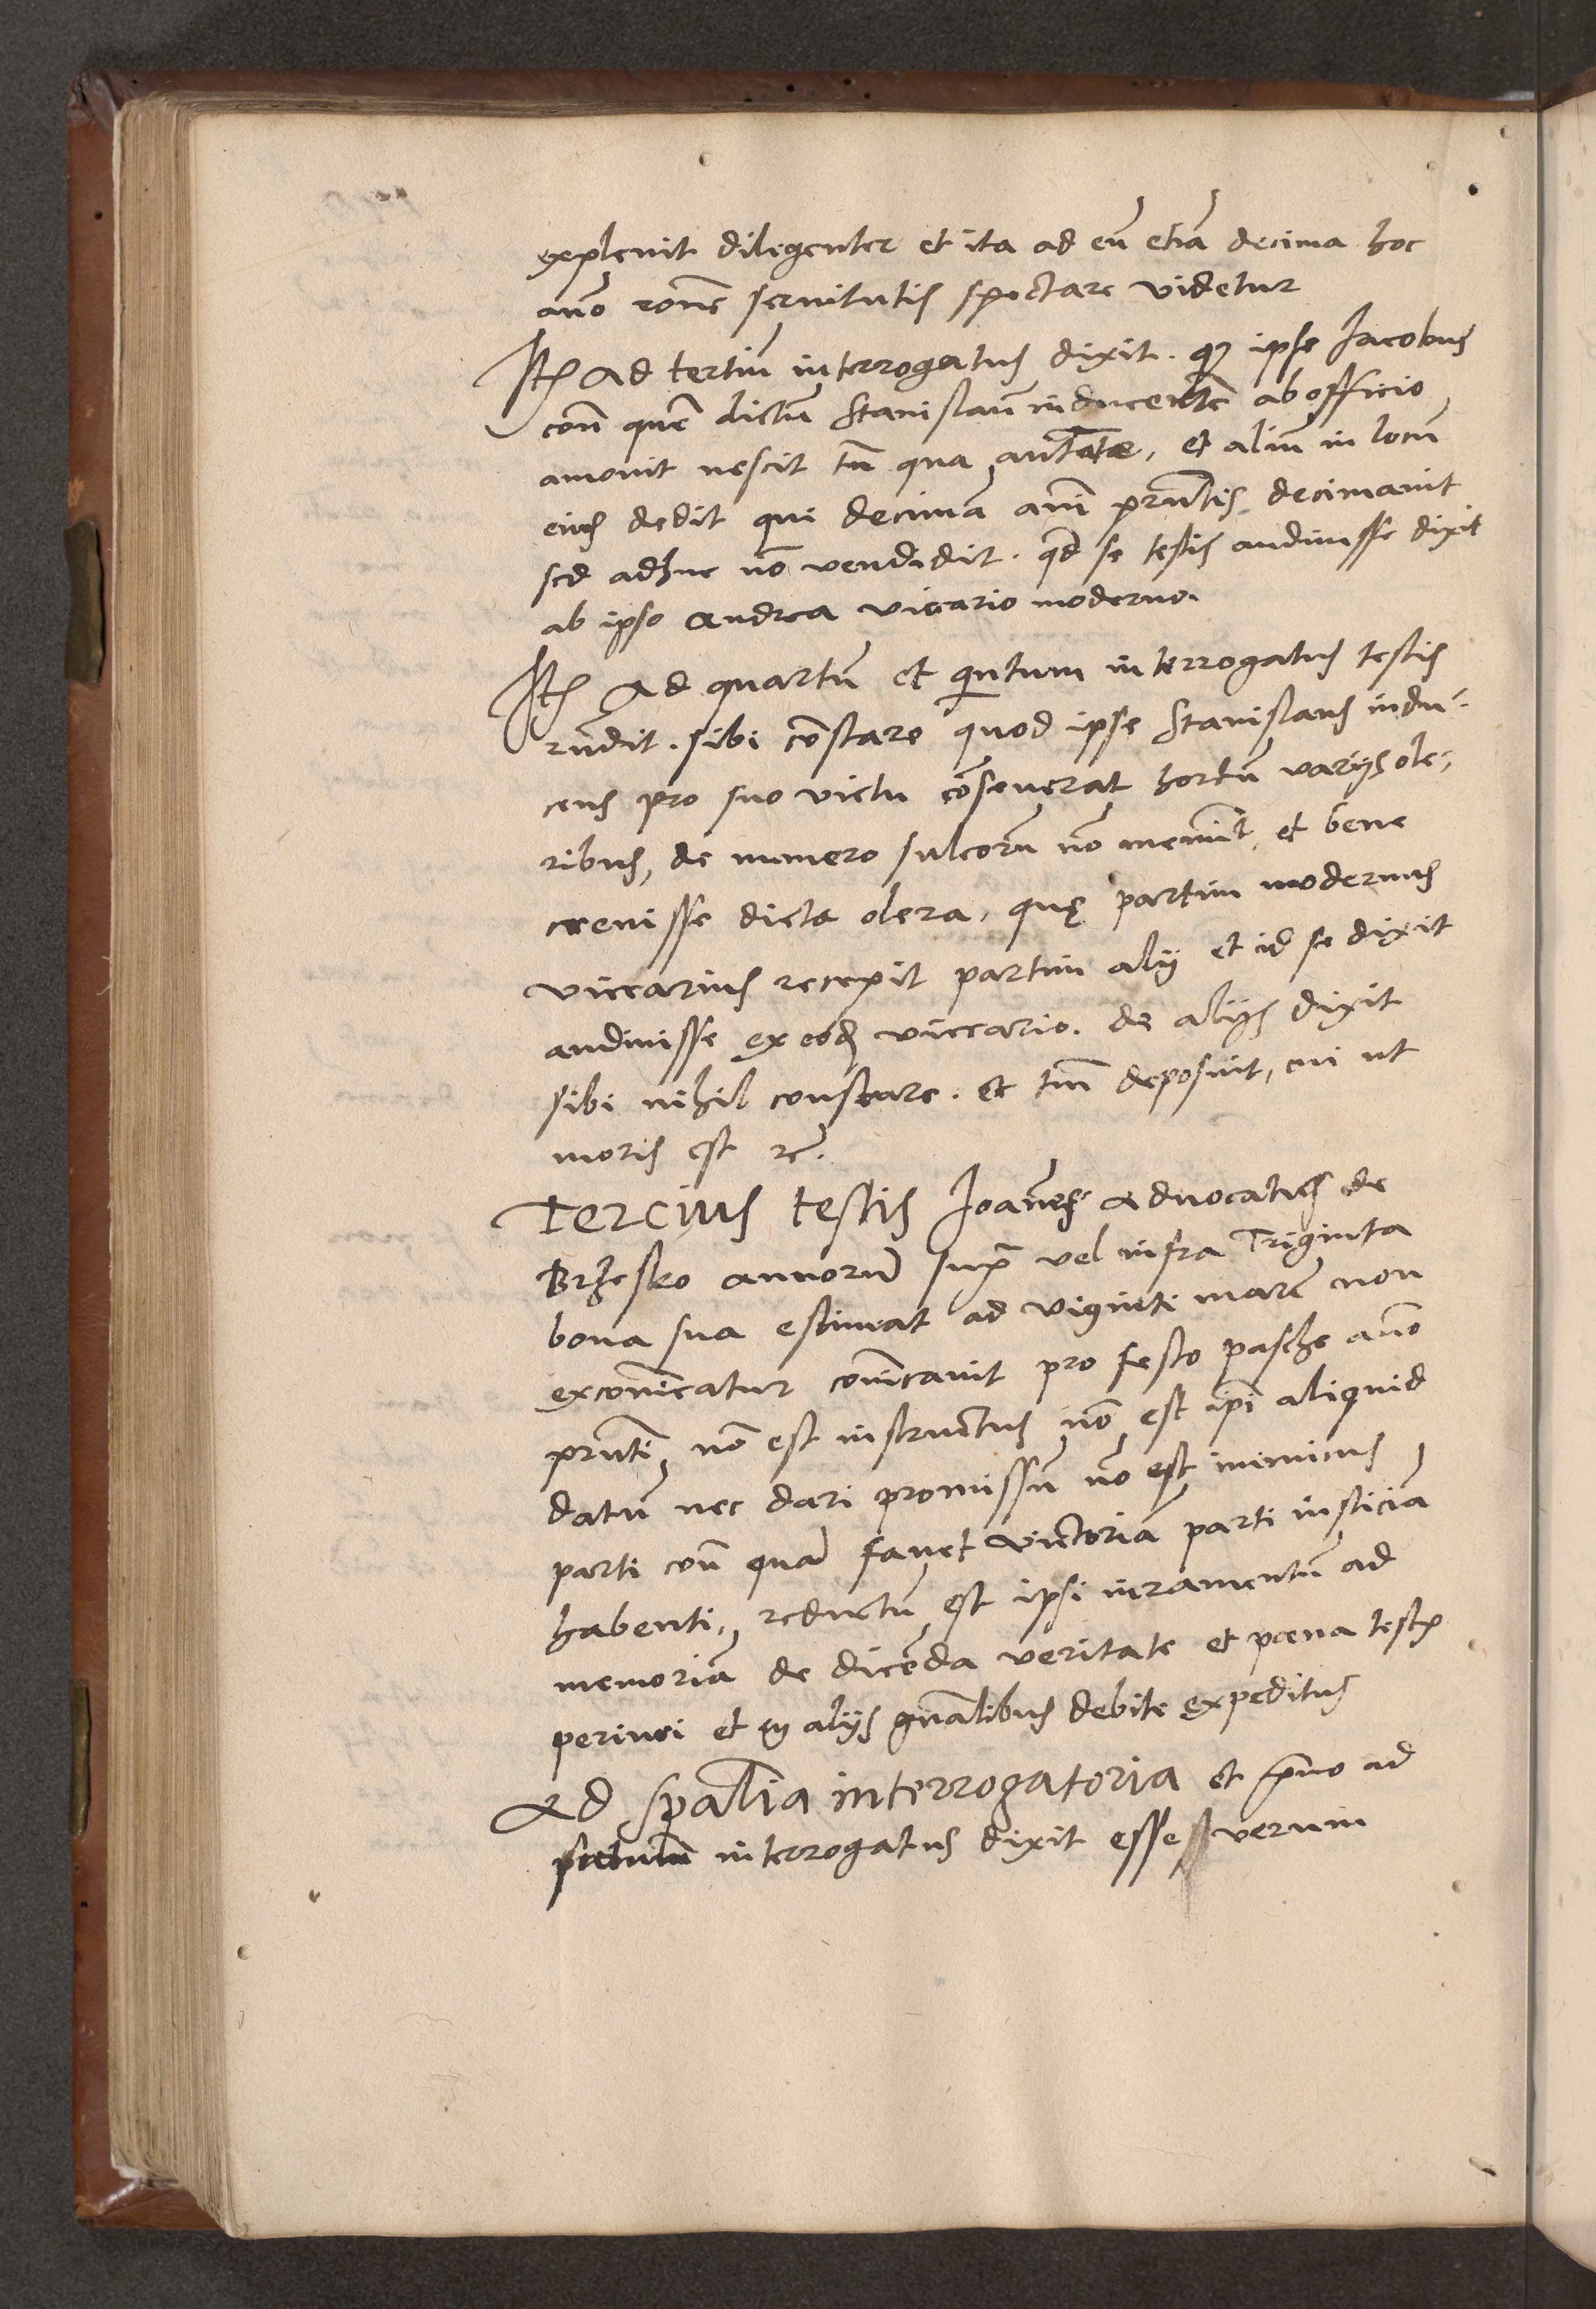 explevit diligenter et ita ad eu͂ etia͂ decima hoc
an͂o ron͂e servitutis spectare videtur
Ite͂ Ad tertiu͂ interrogatus dixit. q ipse Jacobus
con͂ que͂ dictu͂ Stanislau͂ inducente͂ ab officio
amovit nescit tn͂ qua aut͂tate, et aliu͂ in locu͂
eius dedit qui decima͂ an͂i pn͂tis decimavit
sed adhuc no͂ vendidit. qd͂ se testis audivisse dixit
ab ipso Andrea vicario moderno.
Ite͂ Ad quartu͂ et quintum interrogatus testis
rn͂dit. sibi co͂stare quod ipse Stanislaus indu-
cens pro suo victu co͂severat hortu͂ varijs ole-
ribus, de numero sulcoru͂ no͂ memi͂t, et bene
crevisse dicta olera, quę partim modernus
viccarius recepit partim alij et id se dixit
audivisse ex eod͂ viccario. de alijs dixit
sibi nihil constare. et tm͂ deposuit, cui ut
moris est rc͂.
Tercius testis Joan͂es Advocatus de
Brzesko annoru͂ supra vel infra Triginta
bona sua estimat ad viginti marc͂ non
exco͂icatur co͂icavit pro festo pasche an͂o
pn͂ti, no͂ est instructus no͂ est ipi͂ aliquid
datu͂ nec dari promissu͂ no͂ est inimicus
parti con͂ qua͂ favet victoria͂ parti iusticia͂
habenti, reductu͂ est ipsi iuramentu͂ ad
memoria͂ de dice͂da veritate et poena test͂
periuri et in alijs gn͂alibus debite expeditus
Ad sp͂alia interrogatoria et p͂mo ad
interrogatus dixit esse verum